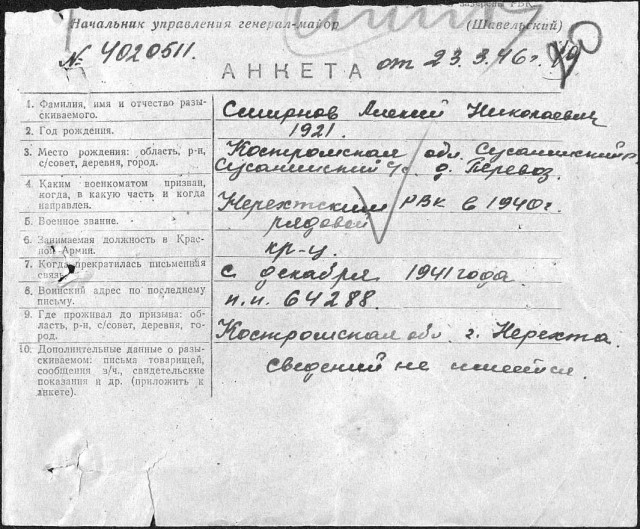 Начальник управления генерал-майор (Шавельский)
№ 4020511.
АНКЕТА от 23.3.46г.
1. Фамилия, имя и отчество разыскиваемого. Смирнов Алексей Николаевич
2. Год рождения. 1921.
3. Место рождения: область, р-н, Костромская обл. Сусанинский р.
с/совет, деревня, город. Сусанинский с/с. д. Перевоз.
4. Каким военкоматом призван,
когда, в какую часть и когда Нерехтский РВК в 1940г.
направлен.
5. Военное звание. рядовой
6. Занимаемая должность в Крас-
ной Армии. кр-ц.
7. Когда прекратилась письменная
связь. с декабря 1941 года.
8. Воинский адрес по последнему
письму. п.п. 64288.
9. Где проживал до призыва: об-
ласть, р-н, с/совет, деревня, го- Костромская обл. г. Нерехта.
род.
10. Дополнительные данные о разы-
скиваемом: письма товарищей, сведений не имеется.
сообщения з/ч., свидетельские
показания и др. (приложить к
анкете).